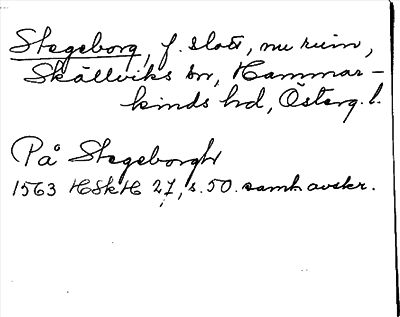 Stegeborg, f. slott, nu ruin,
Skällviks sn, Hammar-
kinds hd, Österg. l.
På Stegeborgh
1563 HSkH 27, s. 50. samt. avskr.